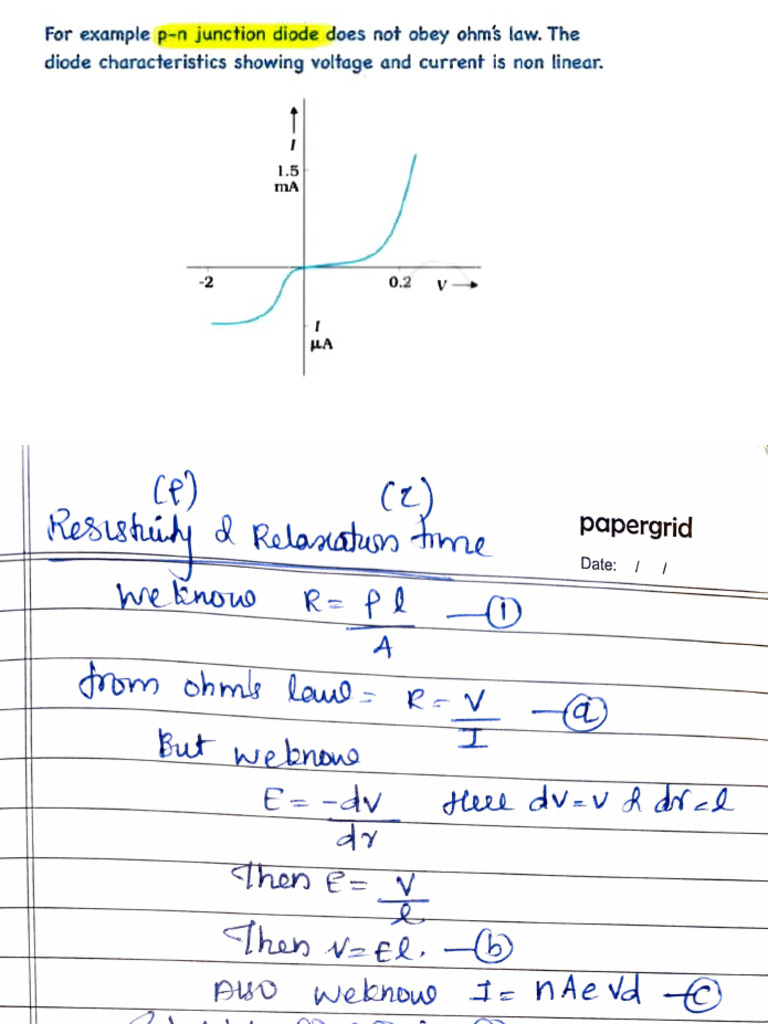 For example p-n junction diode does not obey ohm's law. The
diode characteristics showing voltage and current is non linear.
I
1.5
mA
-2
0.2 V
I
μA
(ρ) (τ)
Resistivity & Relaxation time
papergrid
Date: / /
We know R = ρl/A —①
from ohm's law = R = V/I —ⓐ
But we know
E = -dv/dr Here dv = v & dr = l
Then E = V/l
Then V = El. —ⓑ
Also we know I = nAeVd —ⓒ